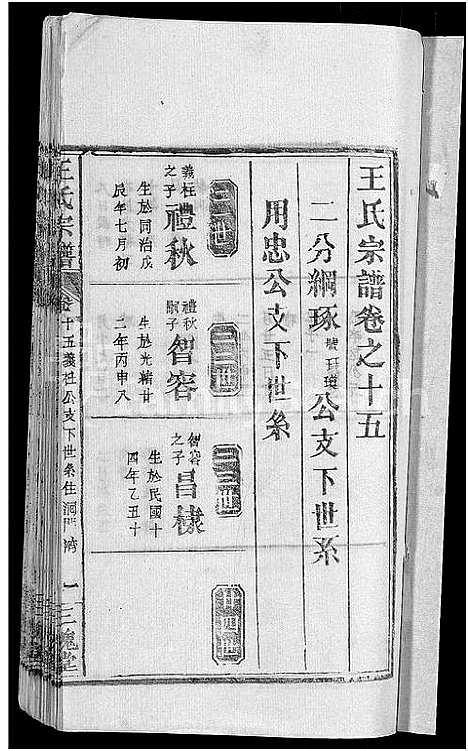 王氏宗譜卷之十五
二分綱琢公支下世系
用忠公支下世系
義柱之子禮秋
生於同治戊
辰年七月初
三三世
禮秋嗣子智容
生於光緒廿
二年丙申八
三三世
智容之子昌樣
生於民國十
四年乙丑十
廿四世
王氏宗譜
卷十五義柱公支下世系住洞門灣
一
三槐堂